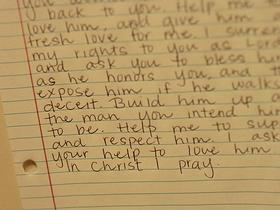 back to you. Help me
love him, and give him
fresh love for me. I surren
my rights to you as Lord
and ask you to bless hi
as he honors you, and
expose him if he walks
deceit. Build him up
the man you intend hi
to be. Help me to sup
and respect him. I ask
your help to love him
In Christ I pray.